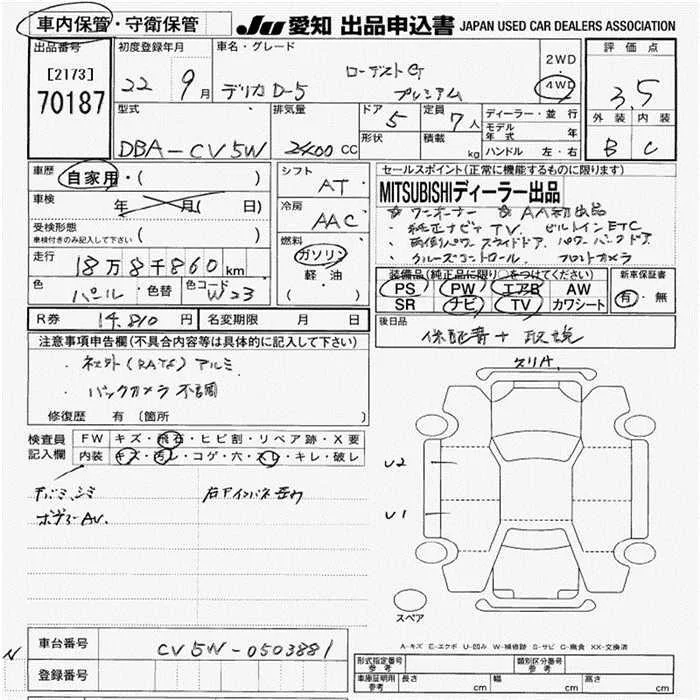 車内保管・守衛保管 JU 愛知 出品申込書 JAPAN USED CAR DEALERS ASSOCIATION
出品番号 初度登録年月 車名・グレード 評価点
[2173] 22 9月 デリカD-5 ローデストG プレミアム 2WD・4WD 3.5
70187
型式 排気量 ドア 定員 ディーラー・並行 外装 内装
DBA-CV5W 2400 CC 5 7人 モデル年式 年 B C
形状 積載 kg ハンドル 左・右
車歴 自家用・( ) シフト AT セールスポイント(正常に機能するものに限ります)
MITSUBISHIディーラー出品
車検 年 月( 日) 冷房 AAC ☆ワンオーナー ☆AA初出品
純正ナビ TV. ビルトインETC
受検形態 車検付きのみ記入して下さい ( ) 燃料 ガソリン 両側パワースライドドア. パワーバックドア
クルーズコントロール フロントカメラ
走行 18万8千860km 軽・油 ( ) 装備品(純正品に限り○をつけてください) 新車保証書
色 パール・色替 色コード W23 PS PW エアB AW 有・無
SR ナビ TV カワシート
R券 14.810円 名変期限 月 日 後日品
保証書+取説
注意事項申告欄(不具合内容等は具体的に記入して下さい)
・社外(RAYS)アルミ
・バックカメラ不調
修復歴 有(箇所 )
クリA.
検査員記入欄 FW キズ・飛石・ヒビ割・リペア跡・X要
内装 キズ・汚レ・コゲ・穴・スレ・キレ・破レ
U2
U1
ボデーAU.
スペア
A-キズ E-エクボ U-凹み W-補修跡 S-サビ C-腐食 XX-交換済
車台番号 CV5W-0503881
N
登録番号
型式指定番号 参考 類別区分番号 参考
車庫証明用 参考 長さ cm 幅 cm 高さ cm